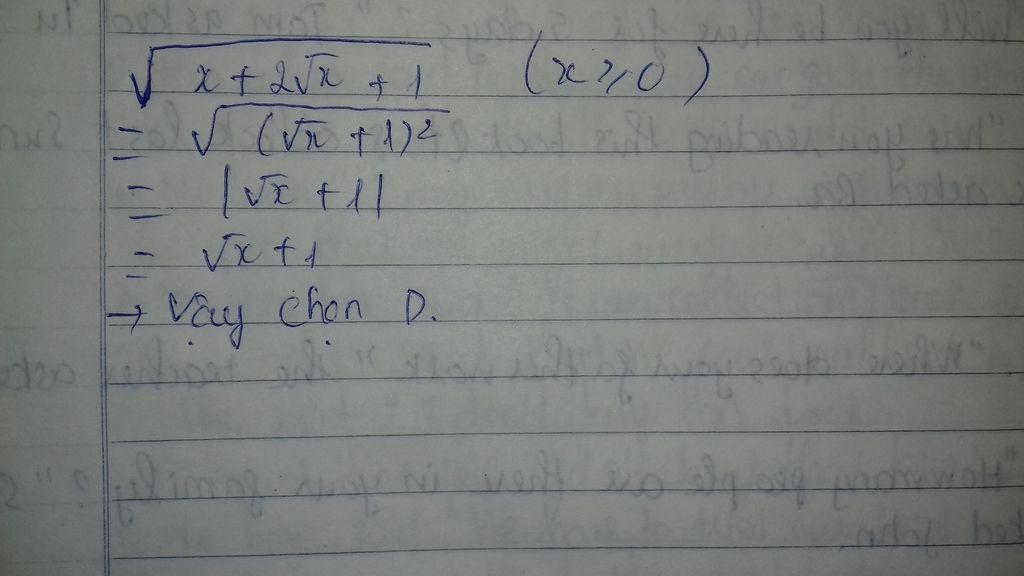 √(x + 2√x + 1) (x ≥ 0)
= √((√x + 1)²)
= |√x + 1|
= √x + 1
→ Vậy chọn D.